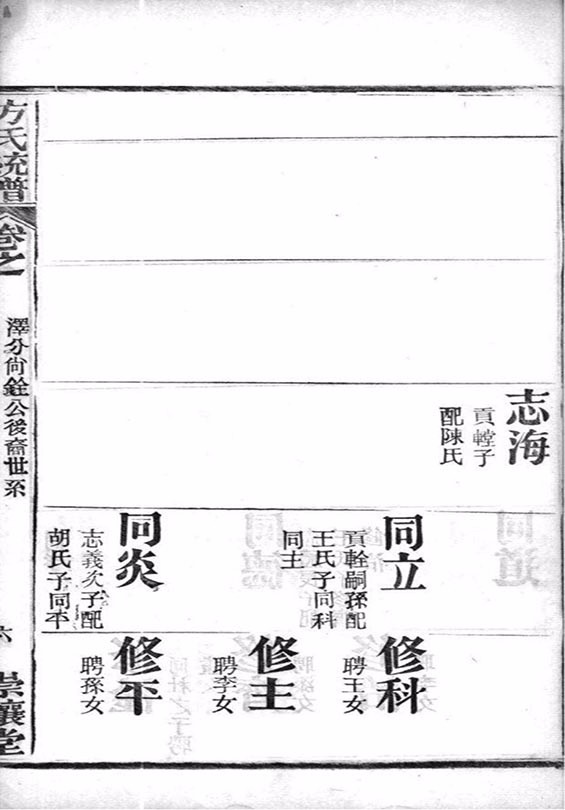 志海
貢子
配陳氏
同立
貢輇嗣孫配
王氏子同科
同主
同炎
志義次子配
胡氏子同平
修科
聘王女
修主
聘李女
修平
聘孫女
方氏統譜
卷之
澤分尙銓公後裔世系
六
崇讓堂